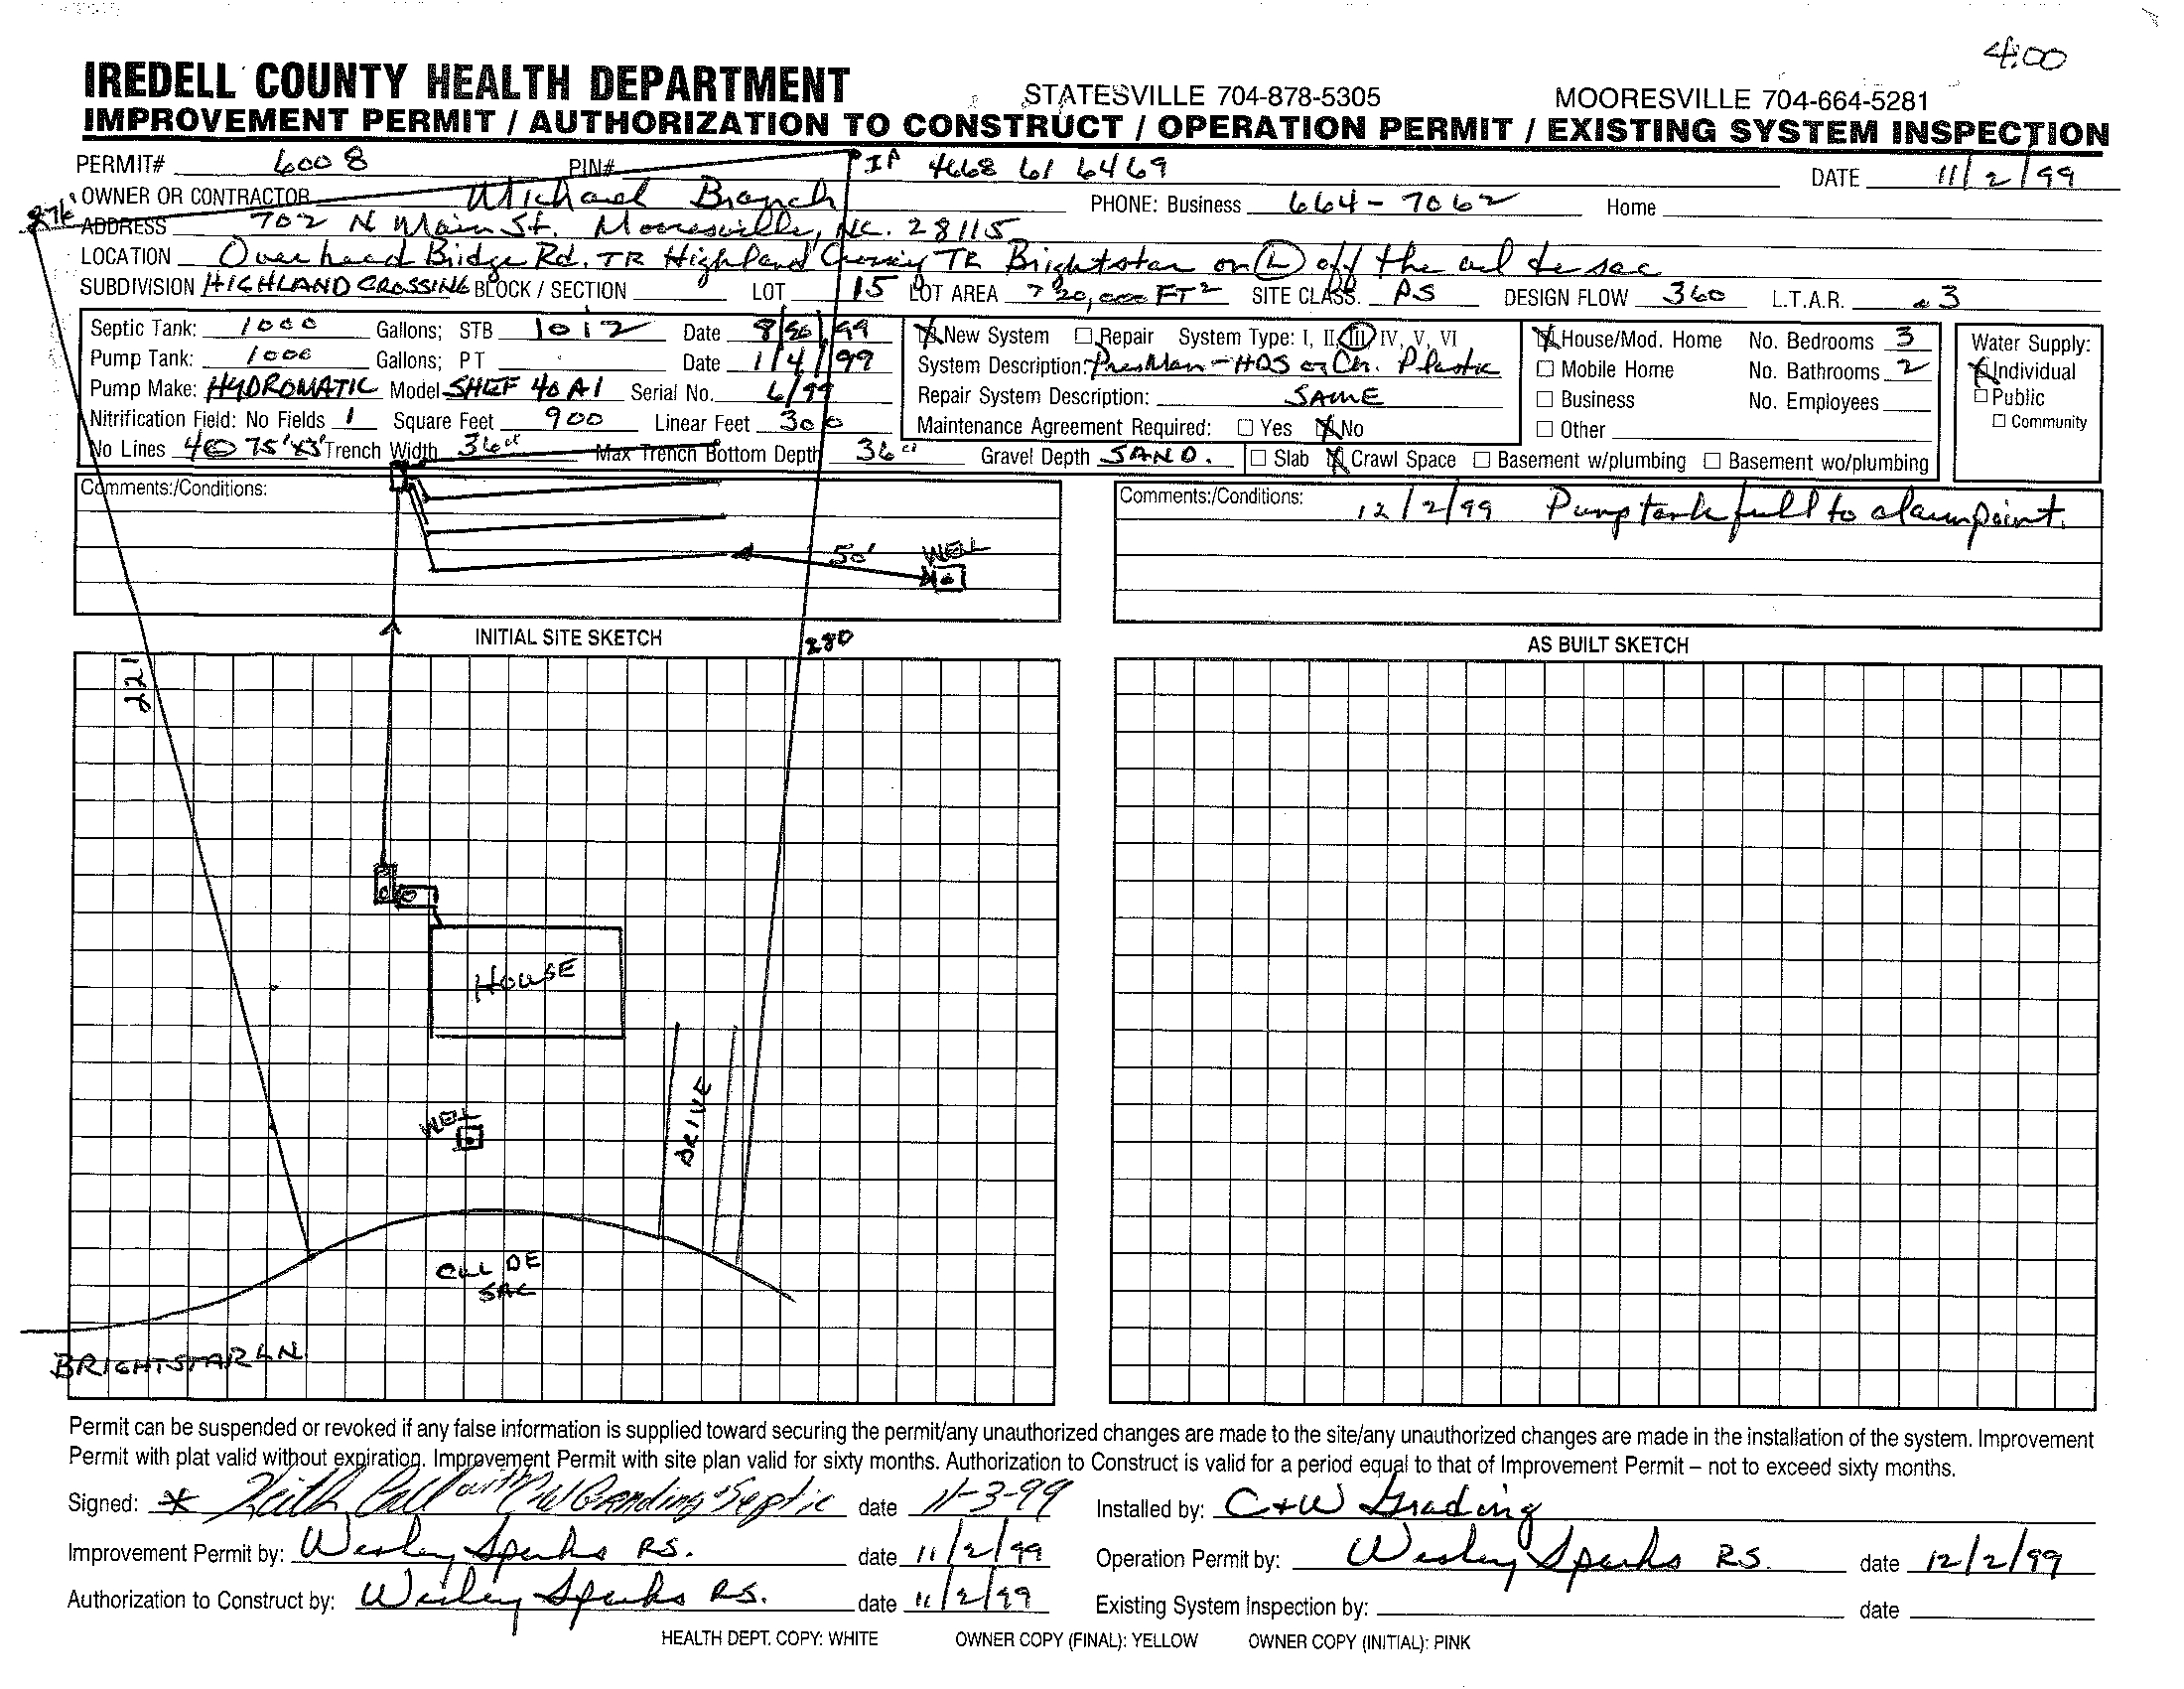 4:00
IREDELL COUNTY HEALTH DEPARTMENT STATESVILLE 704-878-5305 MOORESVILLE 704-664-5281
IMPROVEMENT PERMIT / AUTHORIZATION TO CONSTRUCT / OPERATION PERMIT / EXISTING SYSTEM INSPECTION
PERMIT# 6008 PIN# 4668 61 6469 DATE 11/2/99
OWNER OR CONTRACTOR Michael Branch PHONE: Business 664-7062 Home
ADDRESS 702 N Main St. Mooresville, NC. 28115
LOCATION Overhead Bridge Rd. TR Highland Crossing TR Brightstar on L off the cul de sac
SUBDIVISION HIGHLAND CROSSING BLOCK / SECTION LOT 15 LOT AREA >20,000 FT2 SITE CLASS. PS DESIGN FLOW 360 L.T.A.R. .3
Septic Tank: 1000 Gallons; STB 1012 Date 8/ /99
Pump Tank: 1000 Gallons; PT Date 1/4/99
Pump Make: HYDROMATIC Model SHEF 40 A1 Serial No. 6/99
Nitrification Field: No Fields 1 Square Feet 900 Linear Feet 300
No Lines 4@ 75'x3' Trench Width 36" Max Trench Bottom Depth 36" Gravel Depth SAND.
☒ New System ☐ Repair System Type: I, II, III, IV, V, VI
System Description: Pres Man - HDS or Ch. Plastic
Repair System Description: SAME
Maintenance Agreement Required: ☐ Yes ☒ No
☐ Slab ☒ Crawl Space ☐ Basement w/plumbing ☐ Basement wo/plumbing
☒ House/Mod. Home No. Bedrooms 3
☐ Mobile Home No. Bathrooms 2
☐ Business No. Employees
☐ Other
Water Supply:
☒ Individual
☐ Public
☐ Community
Comments:/Conditions:
50' WELL
Comments:/Conditions: 12/2/99 Pump tank full to alarm point.
INITIAL SITE SKETCH
280
AS BUILT SKETCH
221
HOUSE
WELL
DRIVE
CUL DE
SAC
BRIGHTSTAR LN
Permit can be suspended or revoked if any false information is supplied toward securing the permit/any unauthorized changes are made to the site/any unauthorized changes are made in the installation of the system. Improvement
Permit with plat valid without expiration. Improvement Permit with site plan valid for sixty months. Authorization to Construct is valid for a period equal to that of Improvement Permit – not to exceed sixty months.
Signed: * Keith Call with C&W Grading & Septic date 11-3-99 Installed by: C+W Grading
Improvement Permit by: Wesley Sparks RS. date 11/2/99 Operation Permit by: Wesley Sparks RS. date 12/2/99
Authorization to Construct by: Wesley Sparks RS. date 11/2/99 Existing System Inspection by: date
HEALTH DEPT. COPY: WHITE OWNER COPY (FINAL): YELLOW OWNER COPY (INITIAL): PINK